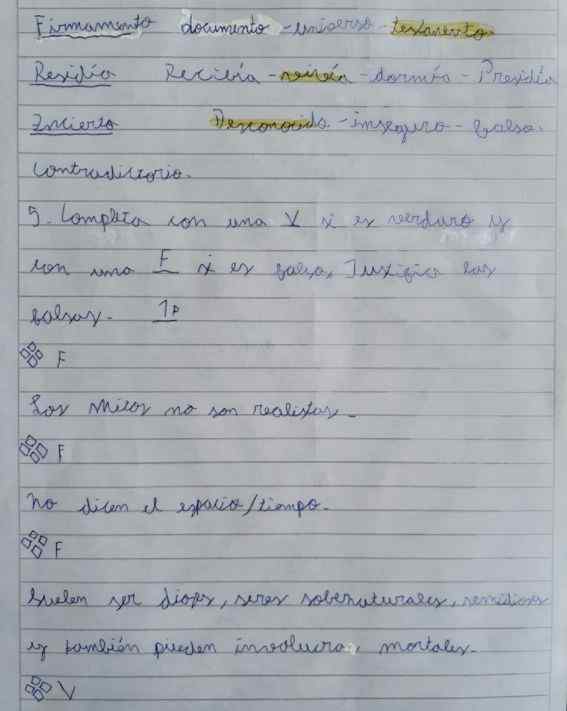 Firmamento documento - universo - testamento
Residía Recibía - vivía - dormía - Presidía
Incierto Desconocido - inseguro - falso.
contradictorio.
5. Completa con una V si es verdaro y
con una F si es falsa, Justifica las
falsas. 1P
F
Los mitos no son realistas.
F
no dicen el espacio/tiempo.
F
Suelen ser dioses, seres sobernaturales, semidioses
y también pueden involucrar mortales.
V